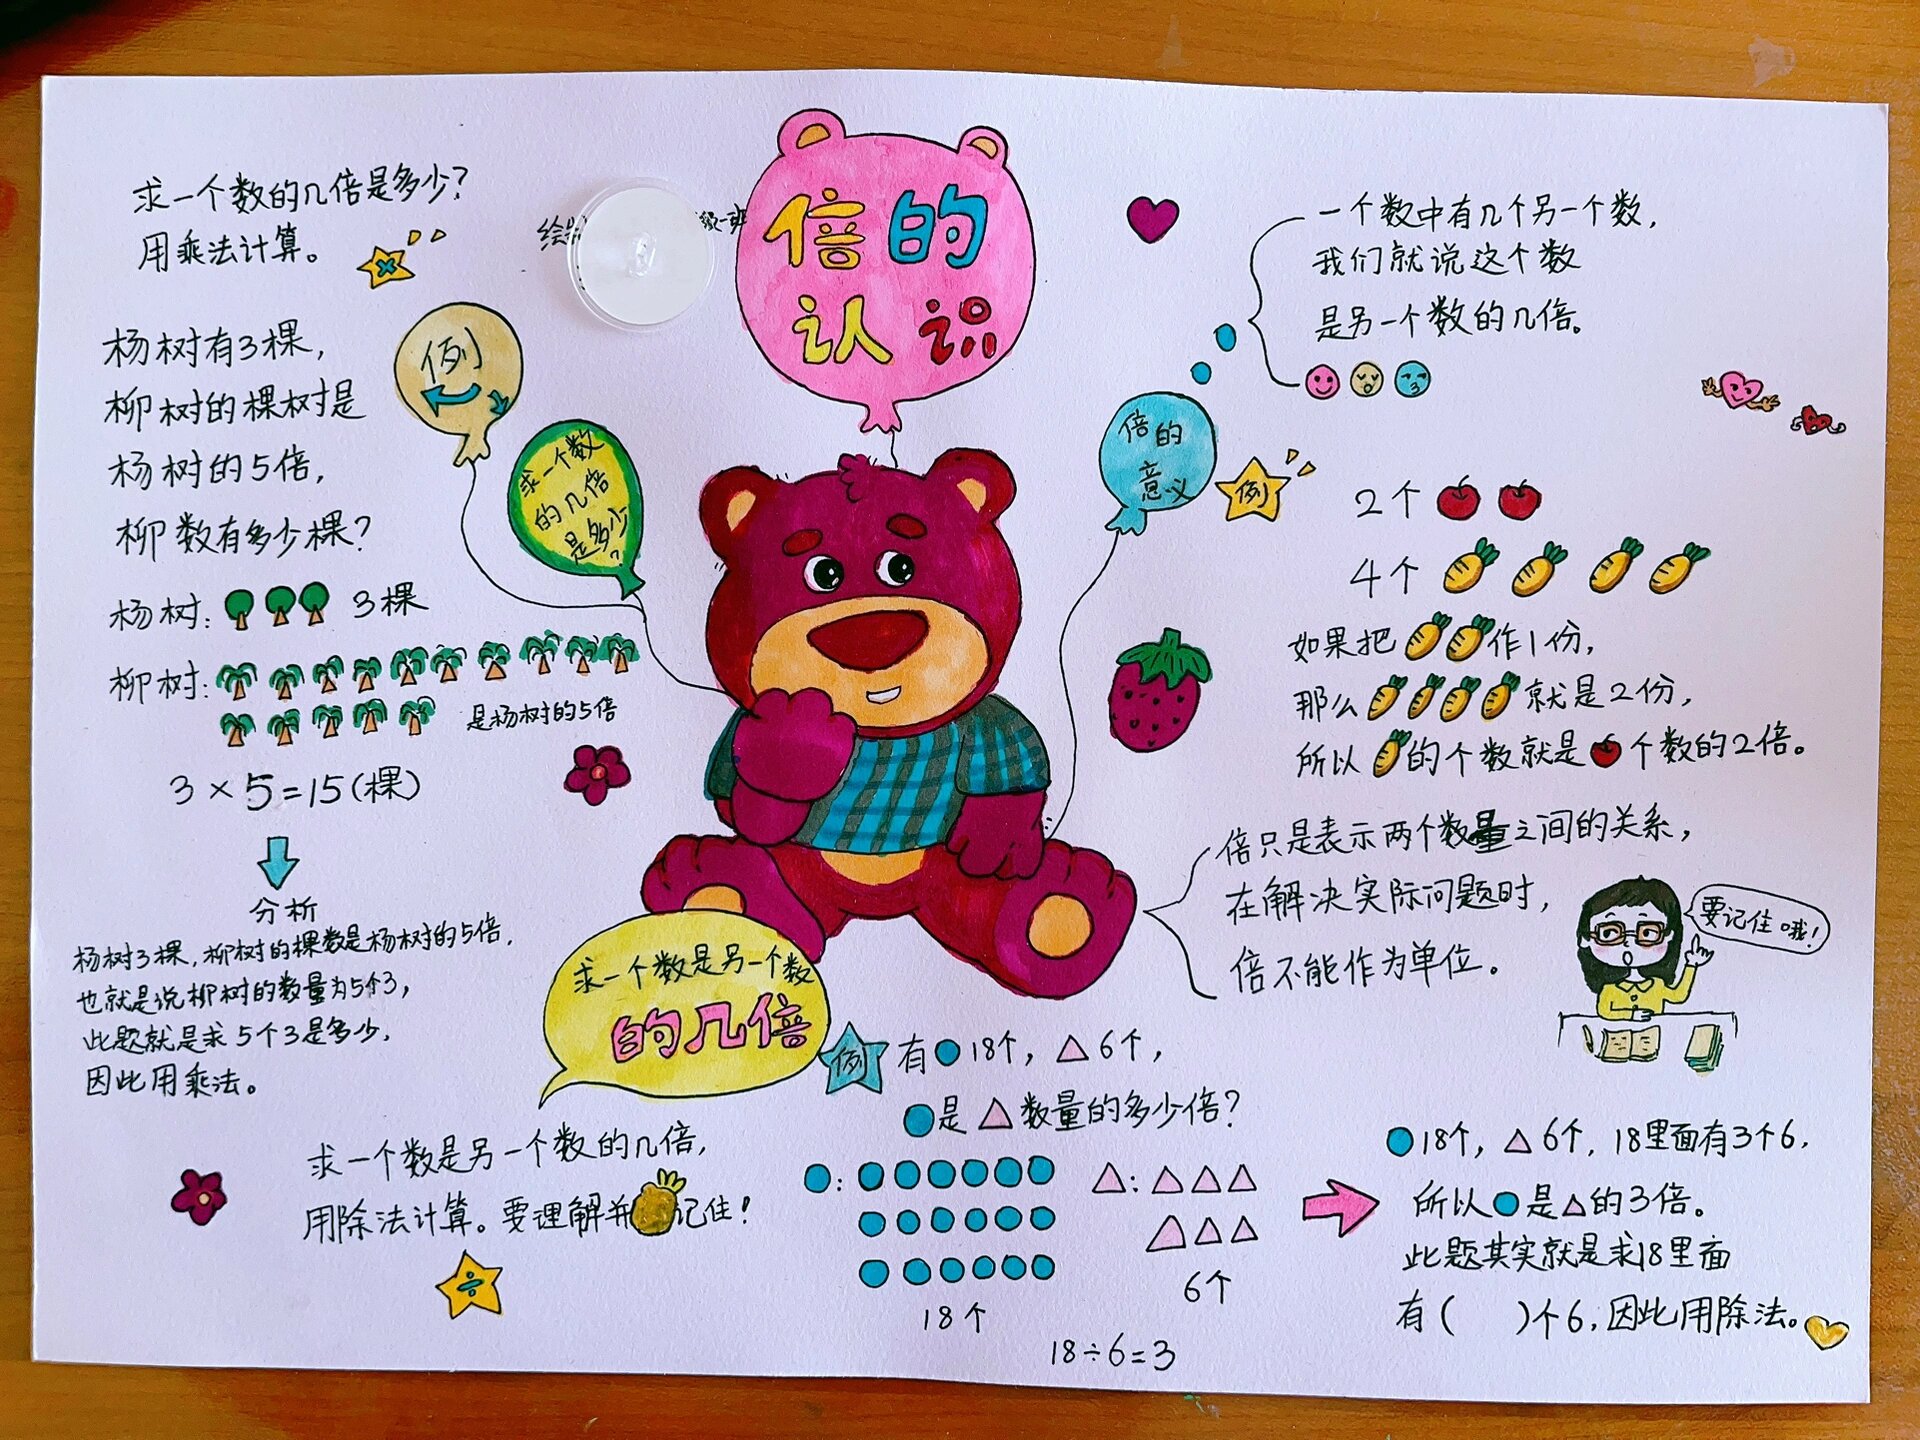 倍的
认识
求一个数的几倍是多少？
用乘法计算。
×
级一班
例
杨树有3棵，
柳树的棵树是
杨树的5倍，
柳数有多少棵？
杨树： 3棵
柳树：
是杨树的5倍
3×5=15(棵)
分析
杨树3棵，柳树的棵数是杨树的5倍，
也就是说柳树的数量为5个3，
此题就是求5个3是多少，
因此用乘法。
求一个数
的几倍
是多少？
倍的
意义
一个数中有几个另一个数，
我们就说这个数
是另一个数的几倍。
例
2个
4个
如果把 作1份，
那么 就是2份，
所以 的个数就是 个数的2倍。
倍只是表示两个数量之间的关系，
在解决实际问题时，
倍不能作为单位。
要记住哦！
求一个数是另一个数
的几倍
求一个数是另一个数的几倍，
用除法计算。要理解并 记住！
÷
例
有 18个， 6个，
是 数量的多少倍？
： ：
18个
6个
18÷6=3
18个， 6个，18里面有3个6，
所以 是 的3倍。
此题其实就是求18里面
有（ ）个6，因此用除法。